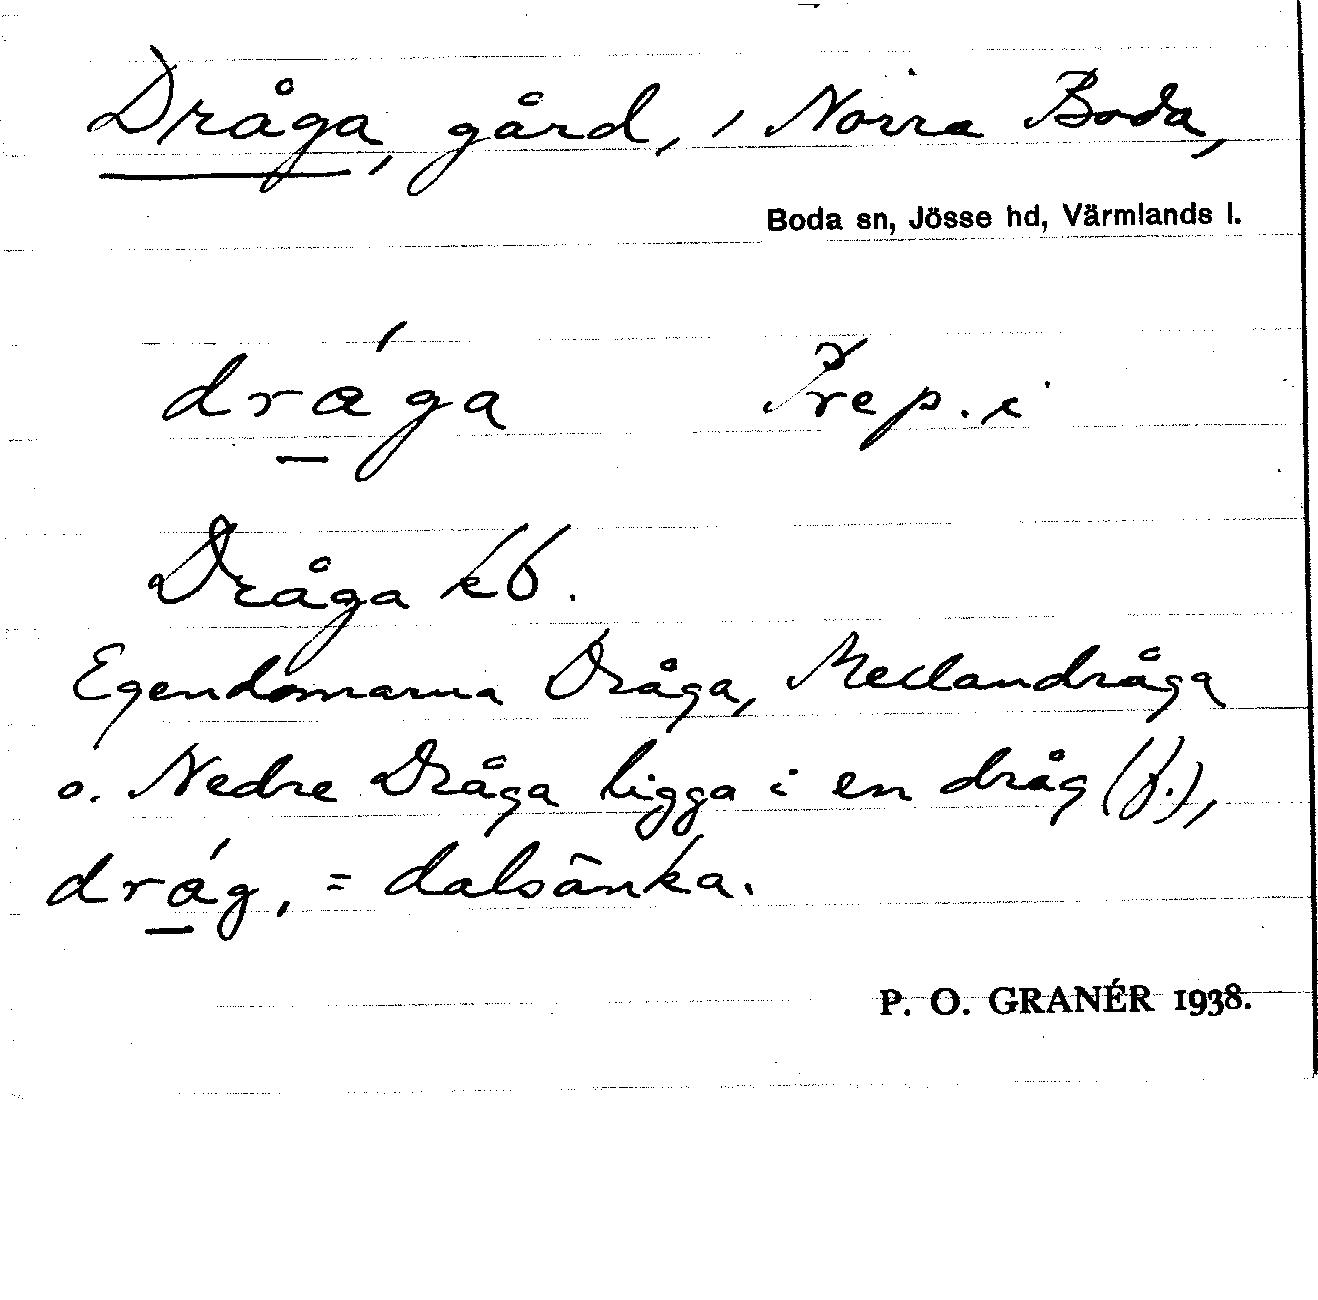 Dråga, gård, i Norra Boda,
Boda sn, Jösse hd, Värmlands l.
drá̱ga Prep. i
Dråga kb.
Egendomarna Dråga, Mellandråga
o. Nedre Dråga ligga i en dråg (f.),
drá̱g, = dalsänka.
P. O. GRANÉR 1938.